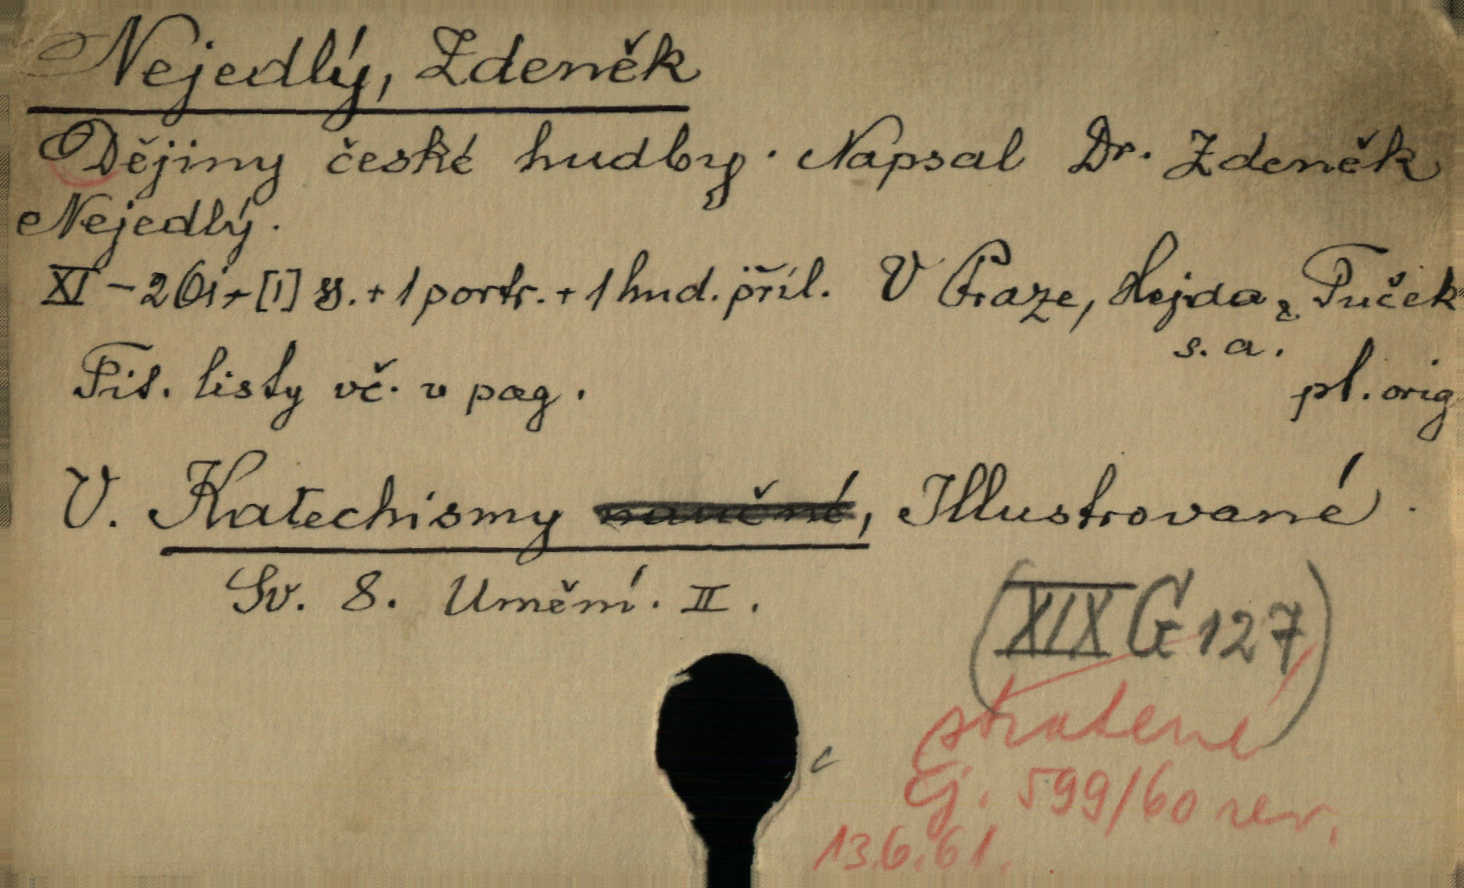 Nejedlý, Zdeněk
Dějiny české hudby. Napsal Dr. Zdeněk
Nejedlý.
XI - 261 + [1] s. + 1 portr. + 1 hud. příl. V Praze, Hejda & Tuček
s. a.
Tit. listy vč. v pag.
pl. orig
V. Katechismy naučné, Illustrované.
Sv. 8. Umění. II.
(XIX G 127)
stratené
čj. 599/60 rev.
13.6.61.